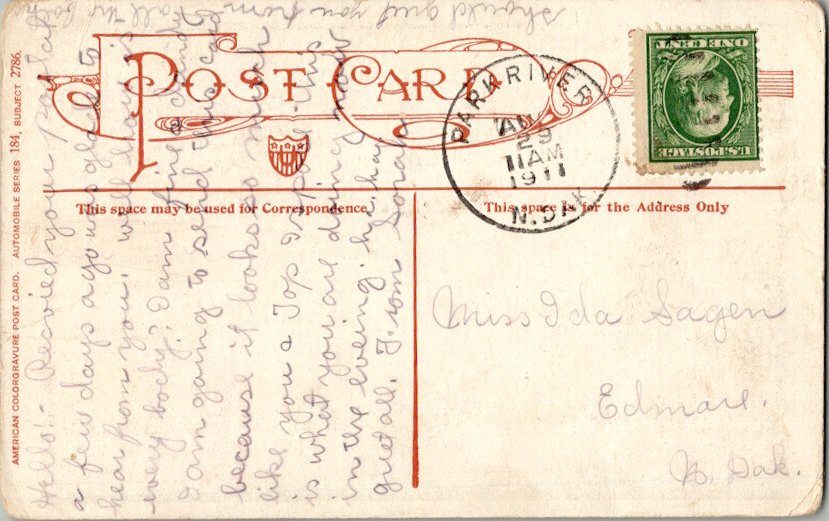 AMERICAN COLORGRAVURE POST CARD. AUTOMOBILE SERIES 184, SUBJECT 2786.
POST CARD
This space may be used for Correspondence
This space is for the Address Only
PARK RIVER
29
11 AM
1911
N. DAK.
U.S. POSTAGE
ONE CENT
Miss Ida Sagen
Edmore.
N. Dak.
Hello:- Recvied your postal
a few days ago was glad to
hear from you. well how is
every body? I am fine & dandy
I am going to send this card
because it looks so much
like you & I suppose this
is what you are doing now
in the eveing. ha. ha.
greet all. From Sorah
I should greet you from all the